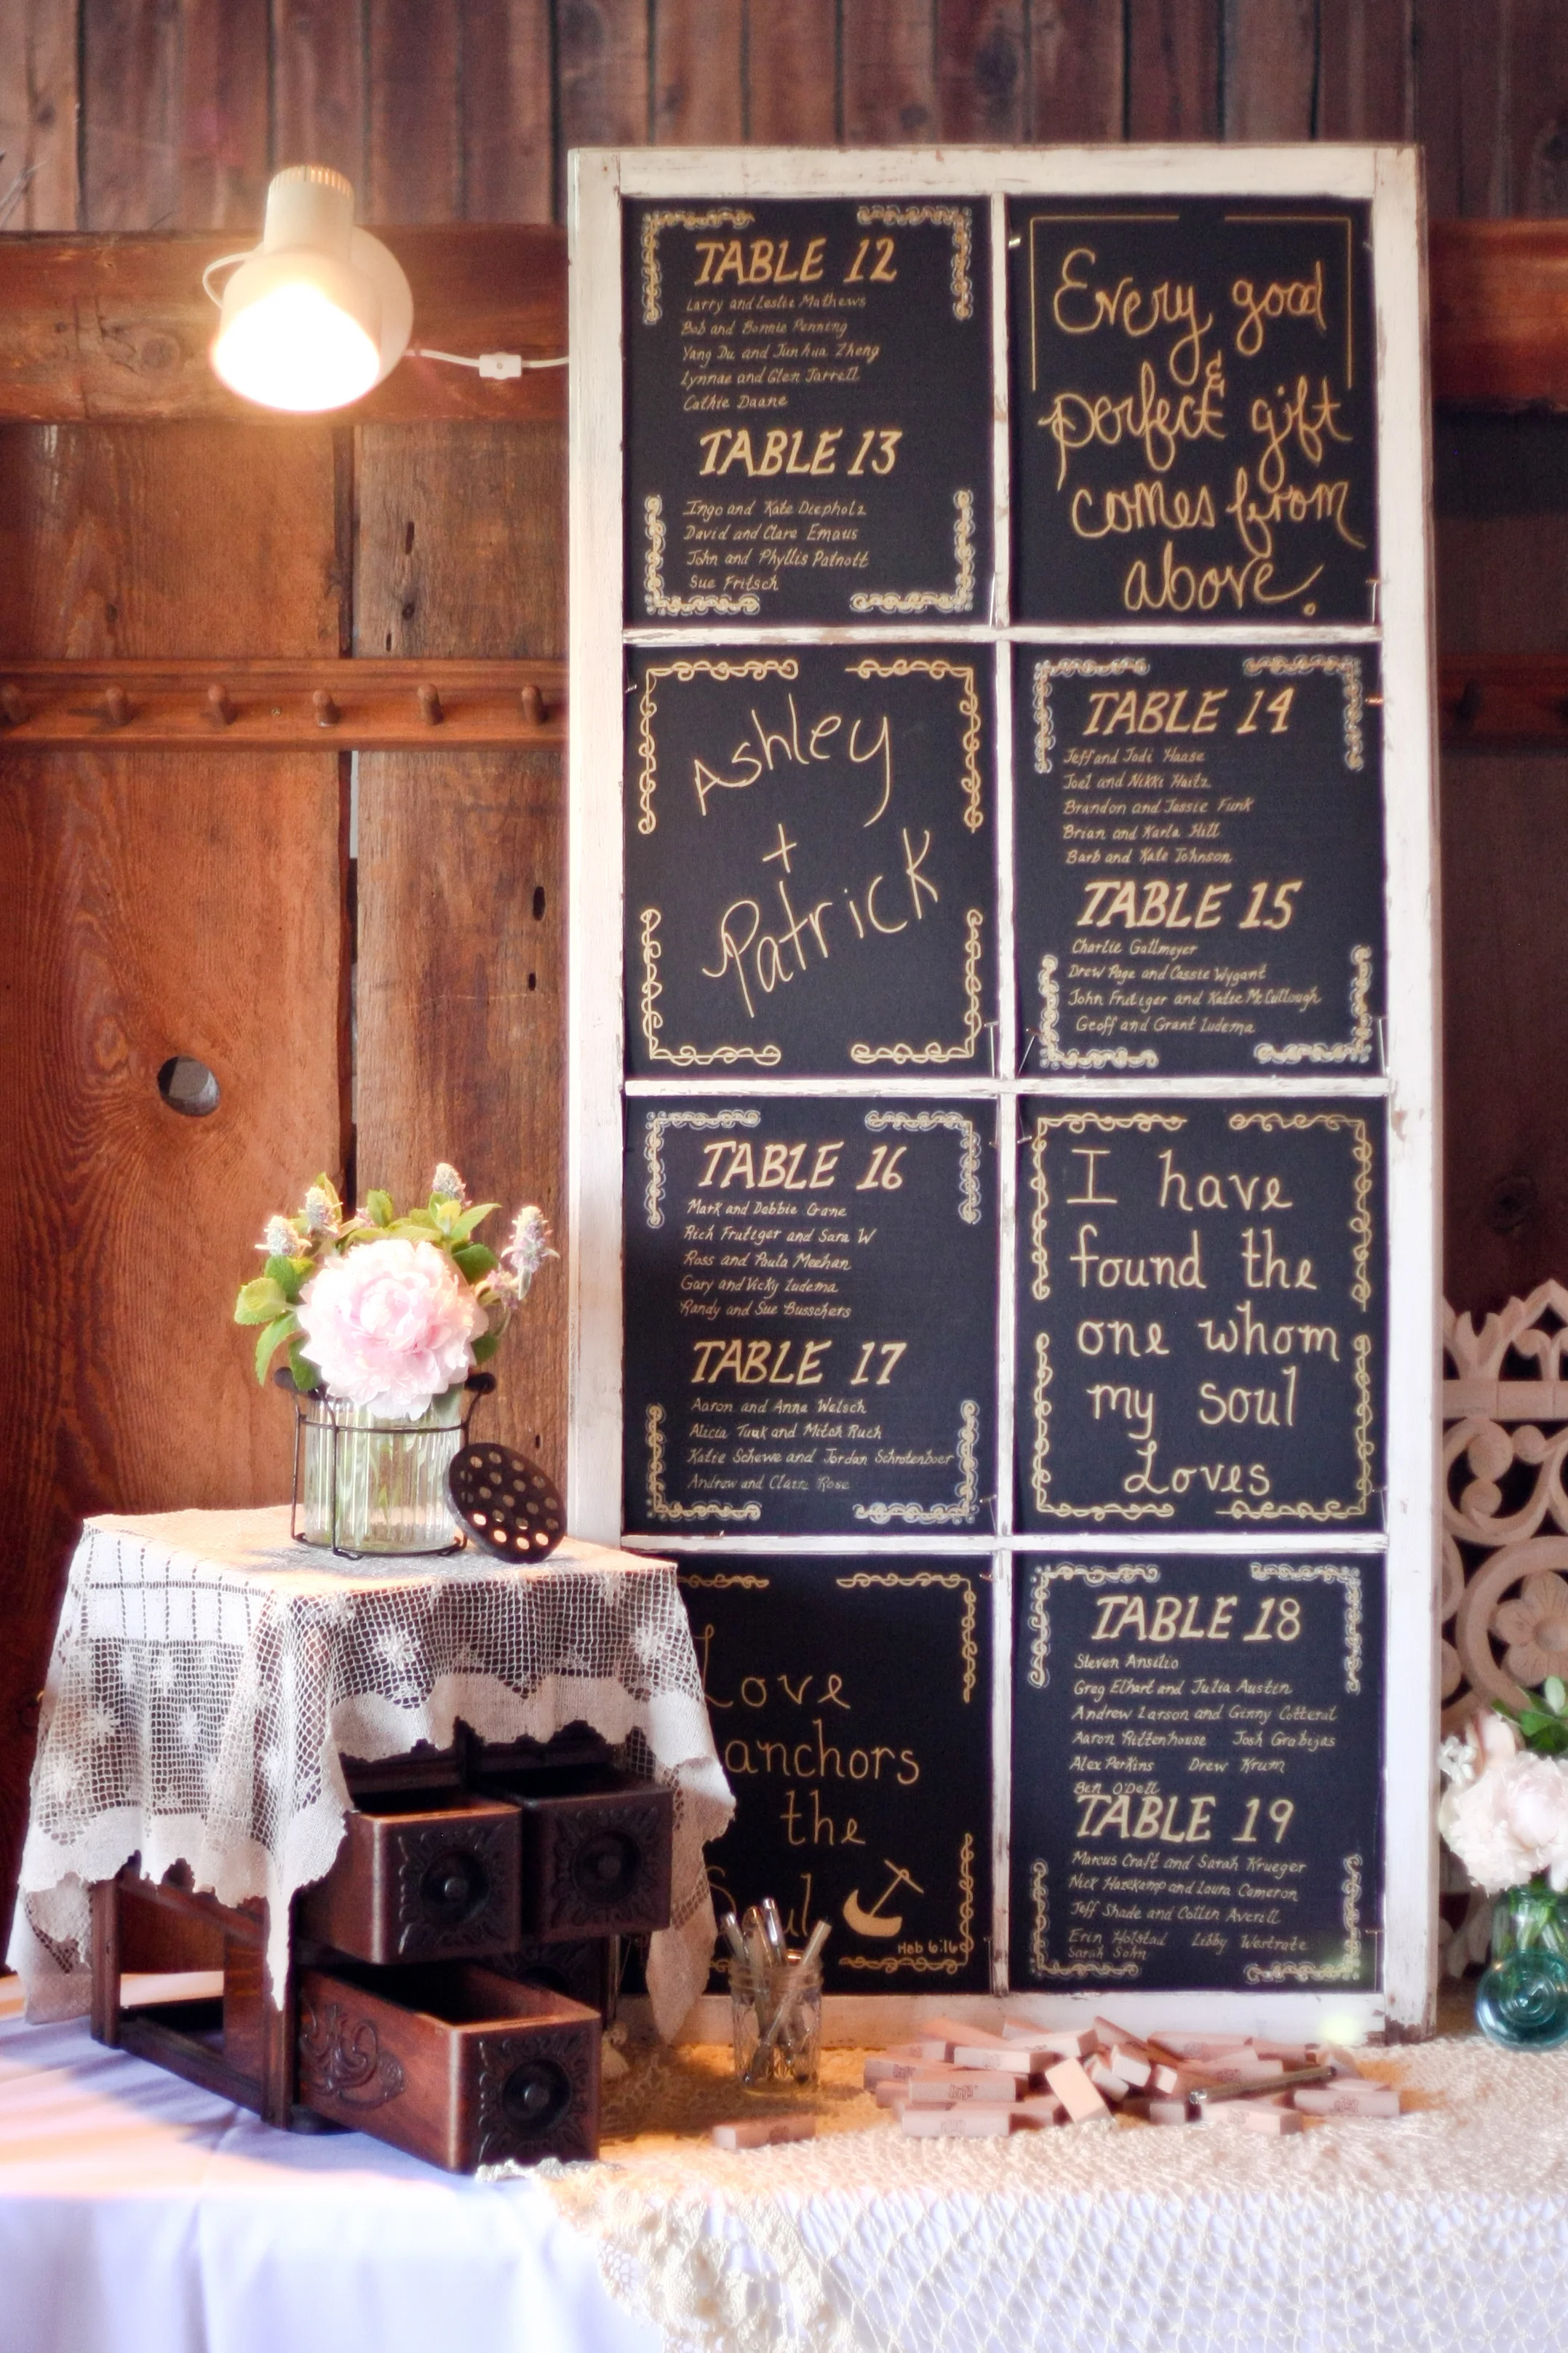 TABLE 12
Larry and Leslie Mathews
Bob and Bonnie Penning
Yang Du and Junhua Zheng
Lynnae and Glen Jarrell
Cathie Daane
TABLE 13
Ingo and Kate Diepholz
David and Clare Emaus
John and Phyllis Patnott
Sue Fritsch
Every good
&
perfect gift
comes from
above.
Ashley
+
Patrick
TABLE 14
Jeff and Jodi Haase
Joel and Nikki Haitz
Brandon and Jessie Funk
Brian and Karla Hill
Barb and Kate Johnson
TABLE 15
Charlie Gallmeyer
Drew Page and Cassie Wygant
John Frutiger and Katie McCullough
Geoff and Grant Ludema
TABLE 16
Mark and Debbie Gane
Rich Frutiger and Sara W
Ross and Paula Meehan
Gary and Vicky Ludema
Randy and Sue Busschers
TABLE 17
Aaron and Anna Welsch
Alicia and Mitch Ruch
Katie Schewe and Jordan Schrotenboer
Andrew and Claire Rose
I have
found the
one whom
my soul
Loves
Love
anchors
the
Soul
Heb 6:16
TABLE 18
Steven Ansilio
Greg Elhart and Julia Austin
Andrew Larson and Ginny Cotteral
Aaron Rittenhouse Josh Grabijas
Alex Perkins Drew Krum
Ben O'Dell
TABLE 19
Marcus Craft and Sarah Krueger
Nick Hasekamp and Laura Cameron
Jeff Shade and Collin Averill
Erin Holstad Libby Westrate
Sarah Sohn